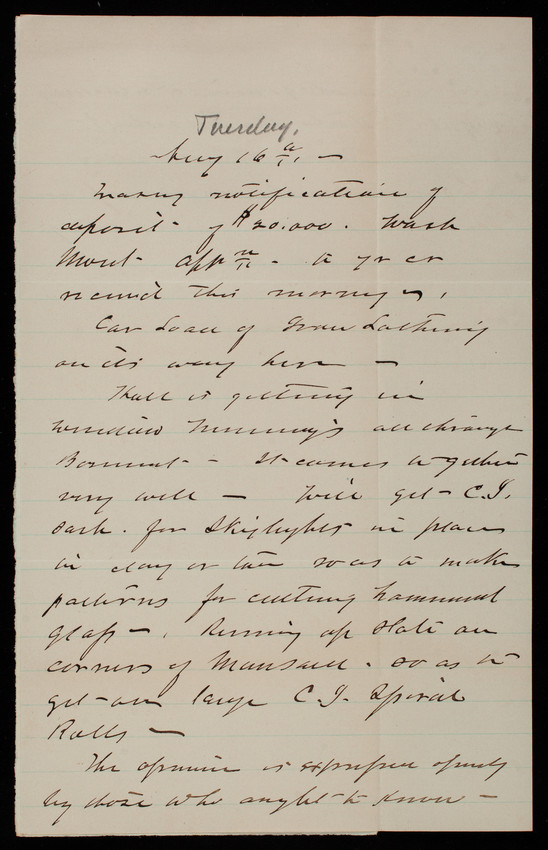 Tuesday.
Aug 16th. —
notification of
deposit of $20.000. Wash
Mont Appn - to yr cr
receiv'd this morning,
Car Load of Iron Lathing
on its way here —
Hall is getting in
window Trimmings all through
Basement - It comes together
very well — Will get C.I.
sash for Skylights in place
in day or two so as to make
patterns for cutting hammered
glass —. Running up slate on
corners of Mansard. so as to
get on large C.I. Spiral
Rolls —
The opinion is expressed openly
by those who ought to know —